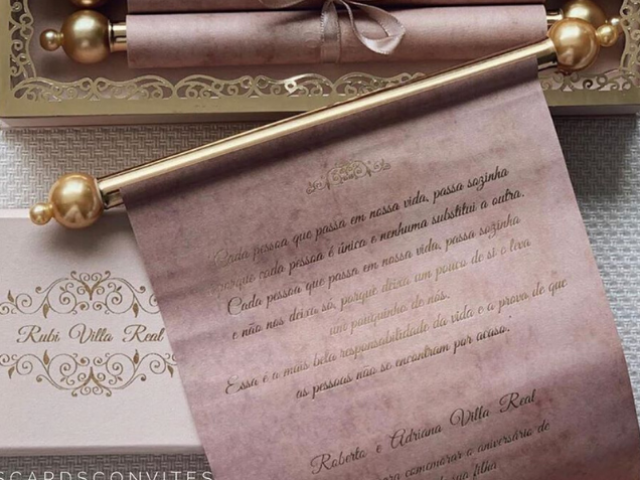 "Cada pessoa que passa em nossa vida, passa sozinha
porque cada pessoa é única e nenhuma substitui a outra.
Cada pessoa que passa em nossa vida, passa sozinha
e não nos deixa só, porque deixa um pouco de si e leva
um pouquinho de nós.
Essa é a mais bela responsabilidade da vida e a prova de que
as pessoas não se encontram por acaso."
Roberto e Adriana Villa Real
para comemorar o aniversário de
sua filha
Rubi Villa Real
SCARDSCONVITES